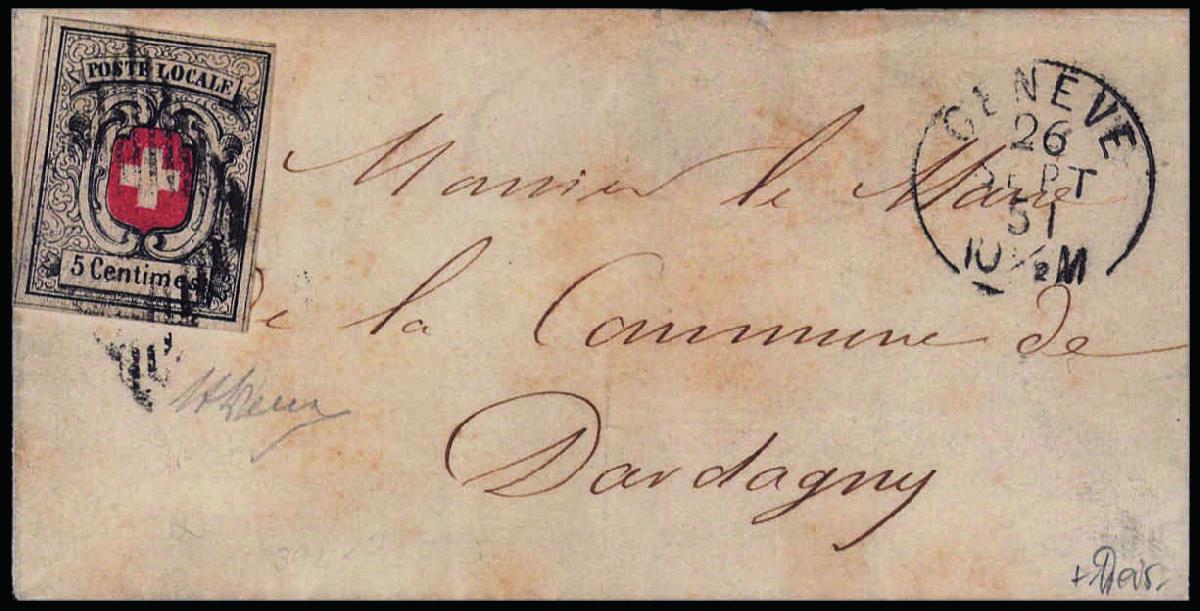 POSTE LOCALE
5 Centimes
GENÈVE
26
SEPT
51
10 ½ M
Monsieur le Maire
de la Commune de
Dardagny